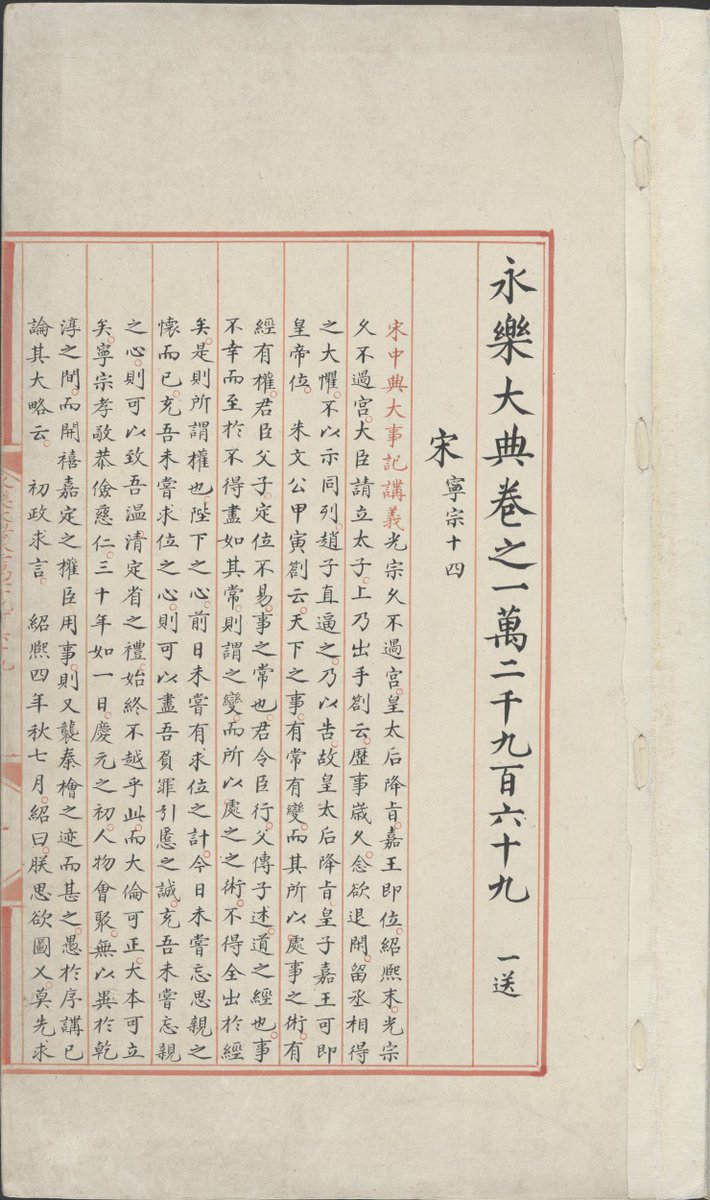 永樂大典卷之一萬二千九百六十九　一送
宋　寧宗十四
宋中興大事記講義光宗久不過宮皇太后降旨嘉王即位紹熙末光宗
久不過宮大臣請立太子上乃出手劄云歷事歲久念欲退閑留丞相得
之大懼不以示同列趙子直逼之乃以告故皇太后降旨皇子嘉王可即
皇帝位　朱文公甲寅劄云天下之事有常有變而其所以處事之術有
經有權君臣父子定位不易事之常也君令臣行父傳子述道之經也事
不幸而至於不得盡如其常則謂之變而所以處之之術不得全出於經
矣是則所謂權也陛下之心前日未嘗有求位之計今日未嘗忘思親之
懷而已充吾未嘗求位之心則可以盡吾負罪引慝之誠充吾未嘗忘親
之心則可以致吾温清定省之禮始終不越乎此而大倫可正大本可立
矣寧宗孝敬恭儉慈仁三十年如一日慶元之初人物會聚無以異於乾
淳之間而開禧嘉定之權臣用事則又襲秦檜之迹而甚之愚於序講已
論其大略云　初政求言　紹熙四年秋七月紹曰朕思欲圖乂莫先求